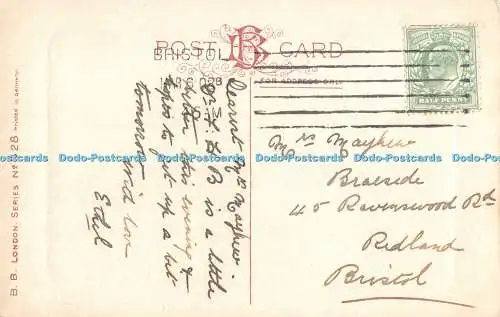 POST CARD
BRISTOL
FOR ADDRESS ONLY
HALF PENNY
B.B. LONDON. SERIES No 28 PRINTED IN GERMANY.
Dearest Mrs Mayhew
B is a little
better this evening &
hopes to get up a bit
tomorrow
with love
Ethel
Mrs Mayhew
Braeside
45 Ravenswood Rd
Redland
Bristol
Dodo-Postcards Dodo-Postcards Dodo-Postcards Dodo-Postcards Dodo-Postcards